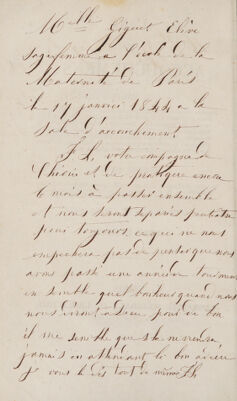 Mlle Giguet Elève
sagefemme a l'école de la
Maternité de Paris
le 17 janvier 1844 a la
Sale d'accouchement
votre compagne de
Théorie et de pratique encore
6 mois à passer ensemble
et nous serons séparés peut etre
pour toujours ce qui ne nous
empechera pas de penser que nous
avons passé une année de
en semble quel bonheur quand nous
nous dirons adieu pour de bon
il me semble que
jamais en attendant le bon adieu
je vous le dis tout de même